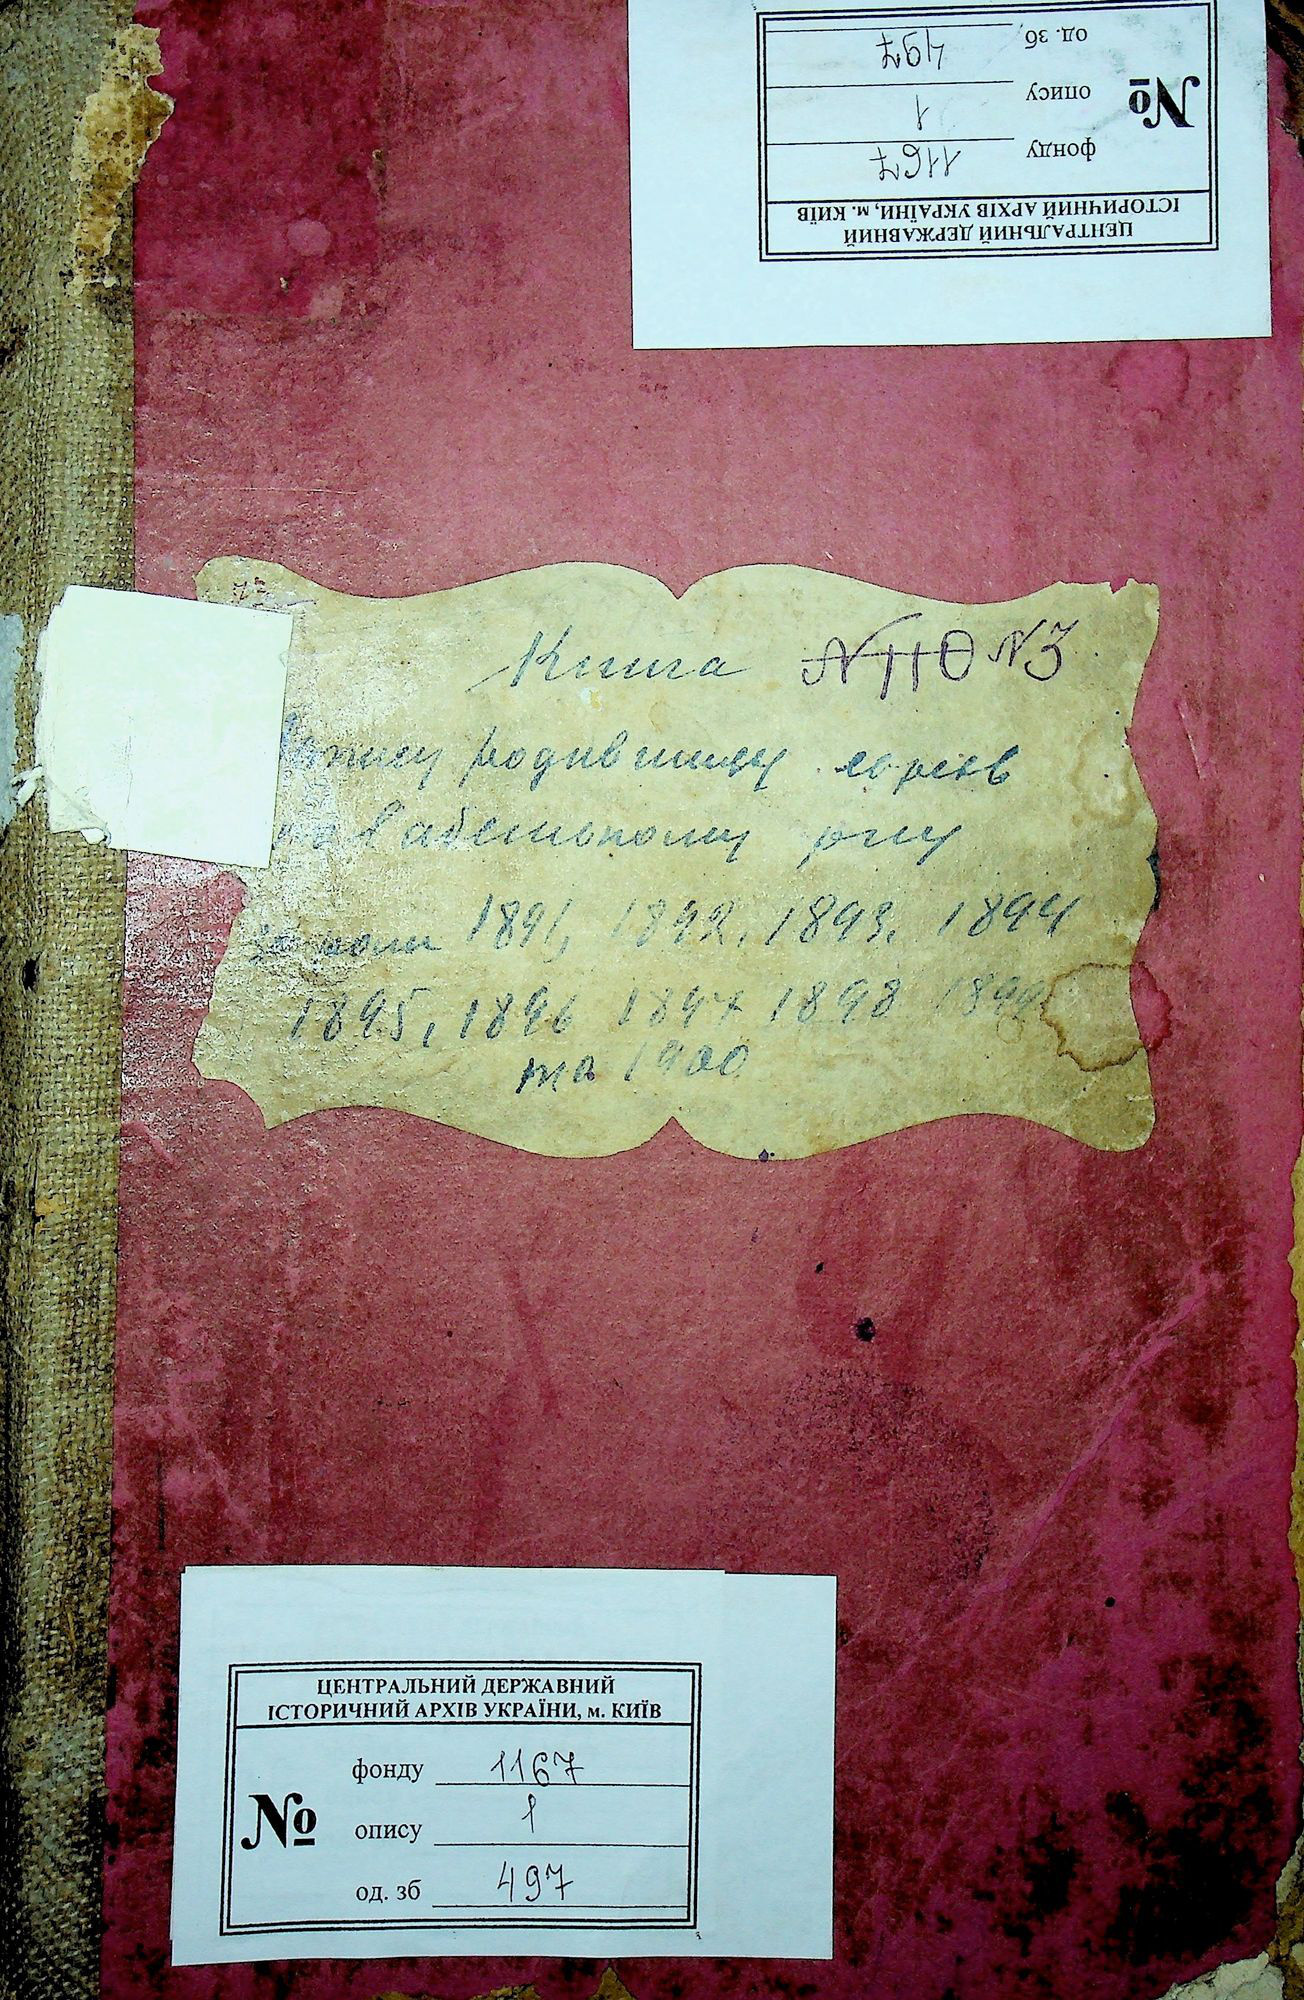 од. зб 497
опису 1
фонду 1167
№
ЦЕНТРАЛЬНИЙ ДЕРЖАВНИЙ
ІСТОРИЧНИЙ АРХІВ УКРАЇНИ, м. КИЇВ
Книга №110 №3
запису родившиху євреїв
по Рабенському року
за роки 1891, 1892, 1893, 1894
1895, 1896 1897 1898 1899
та 1900
ЦЕНТРАЛЬНИЙ ДЕРЖАВНИЙ
ІСТОРИЧНИЙ АРХІВ УКРАЇНИ, м. КИЇВ
№
фонду 1167
опису 1
од. зб 497